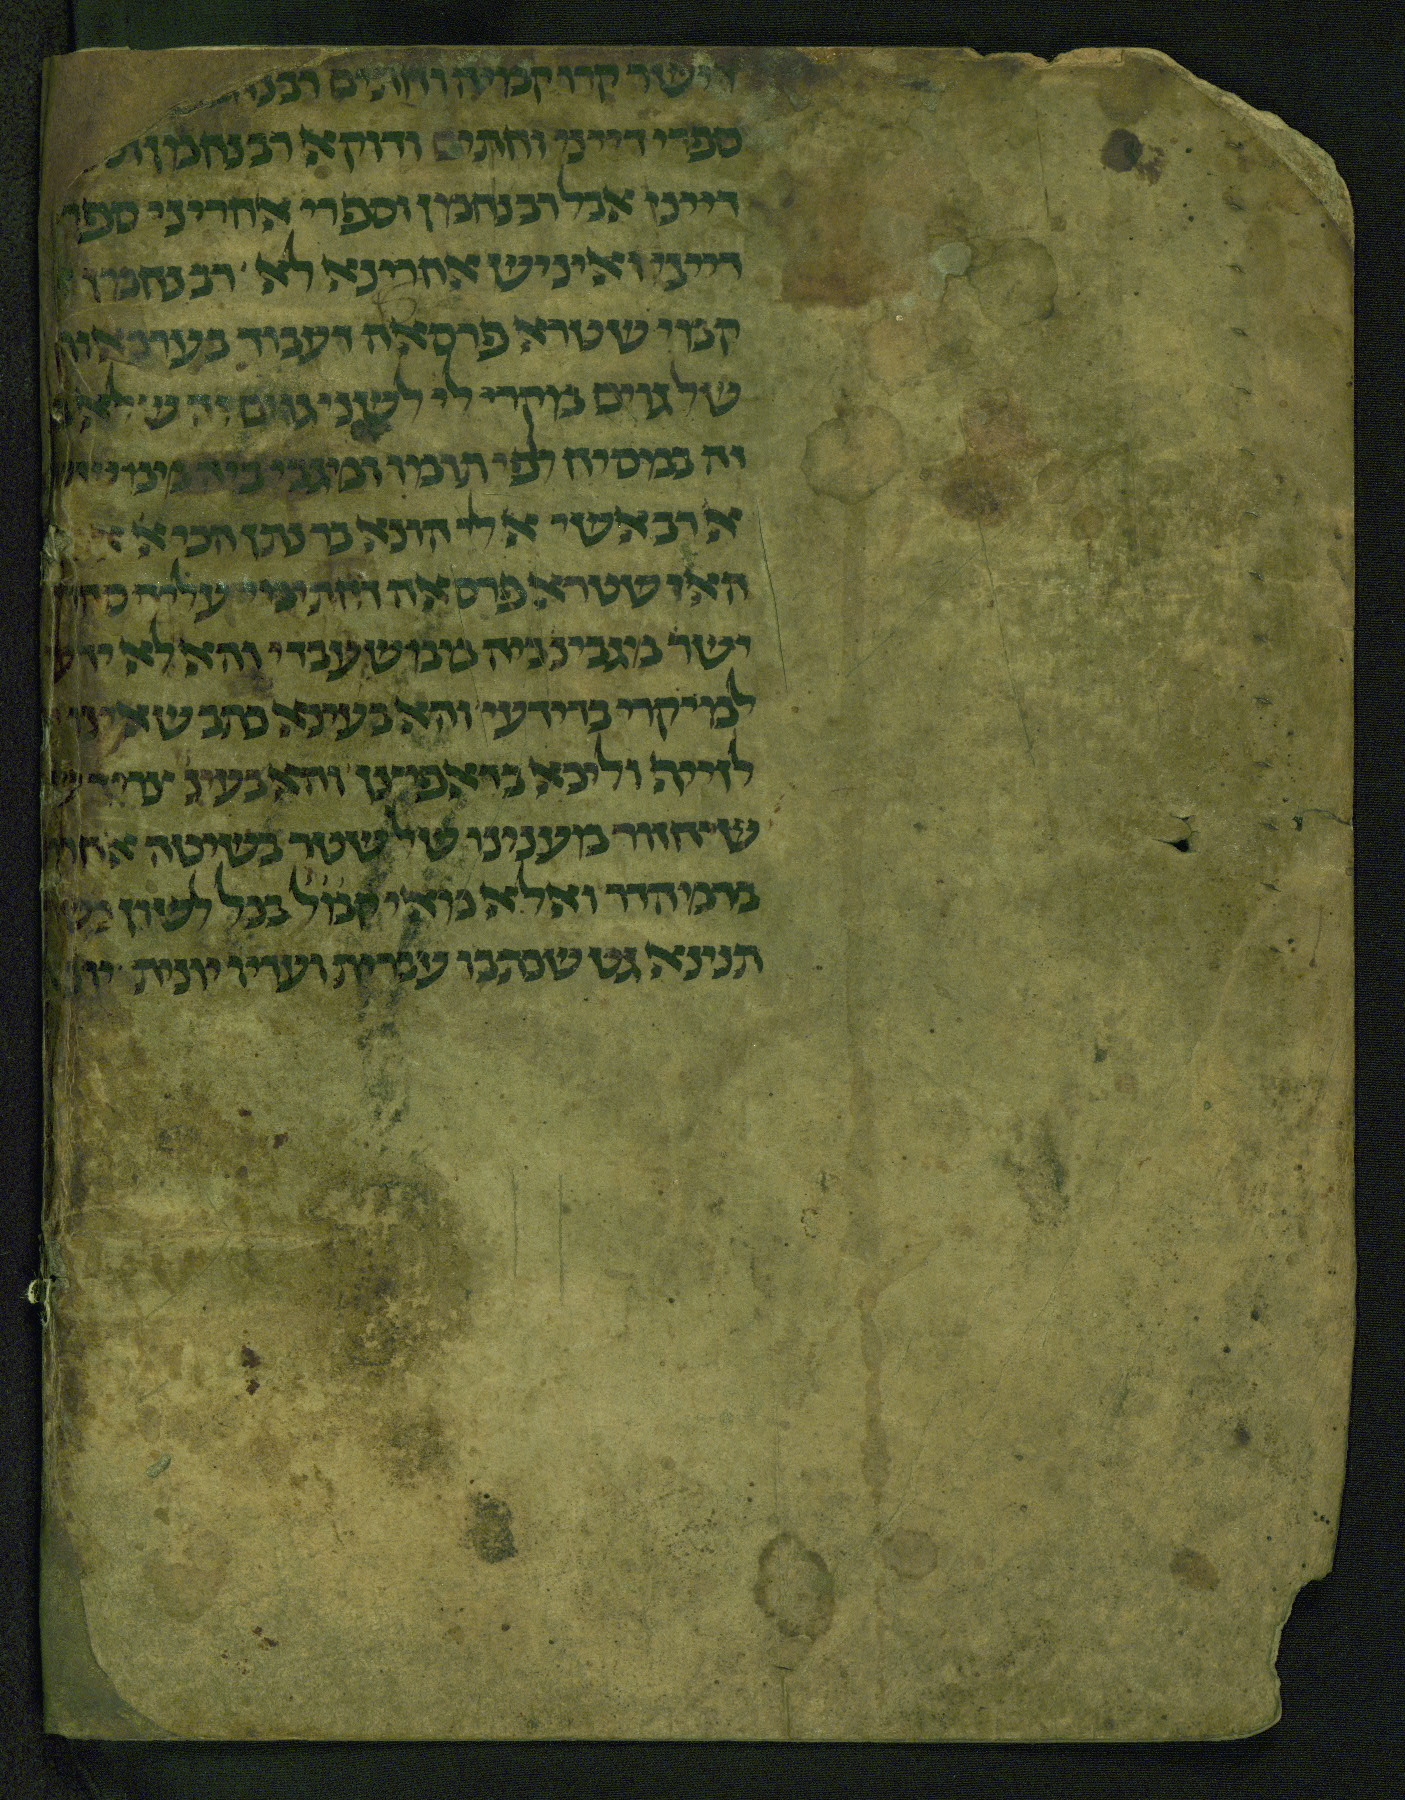 וישר קרו קמיה וחתים רבנ
ספרי דייני וחתים ודוקא רב נחמן
דייני אבל רב נחמן וספרי אחריני ספרי
דייני ואיניש אחרינא לא רב נחמן
קמי שטרא פרסאה דעביד בערכאות
של גוים מקרי לי לשני גוים זה שלא
זה במסיח לפי תומו ומגבי ביה
א רב אשי א לי הונא בר נתן הכי א
האי שטרא פרסאה דחתימי עליה
ישר מגבינן ביה ממשעבדי והא לא ידעי
למיקרי בדידעי והא בעינא כתב שאינו
לזייף וליכא בדאפיצן והא בעינ צריך
שיחזור מענינו של שטר בשיטה אחרו
בדמיהדר ואלא מאי קמל בכל לשון
תנינא גט שכתבו עברית ועדיו יונית